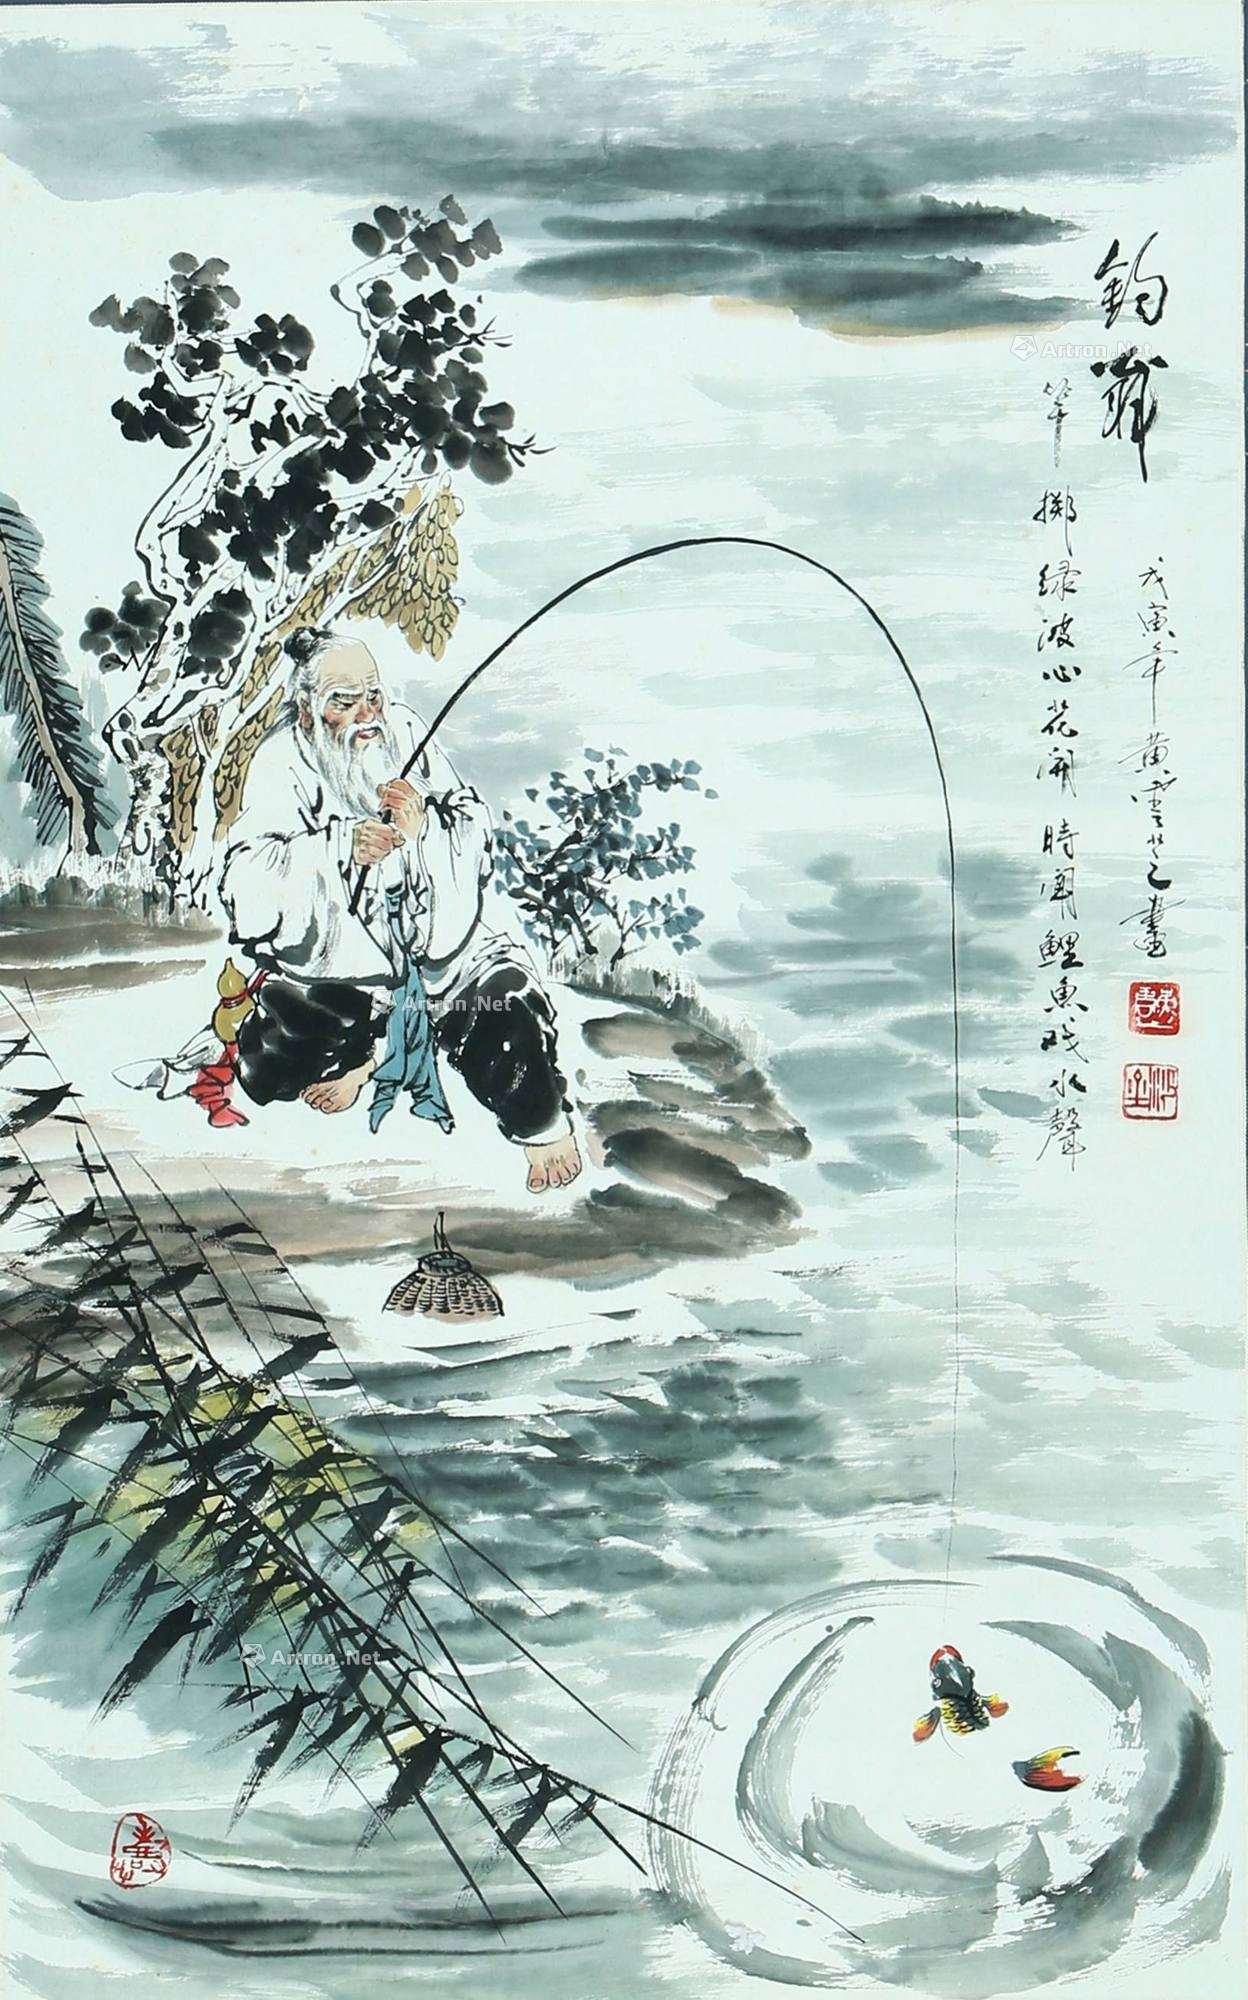 钓
竿掷绿波心花开時闻鲤魚戏水聲
戊寅年黄
之畫
Artron.Net
Artron.Net
Artron.Net